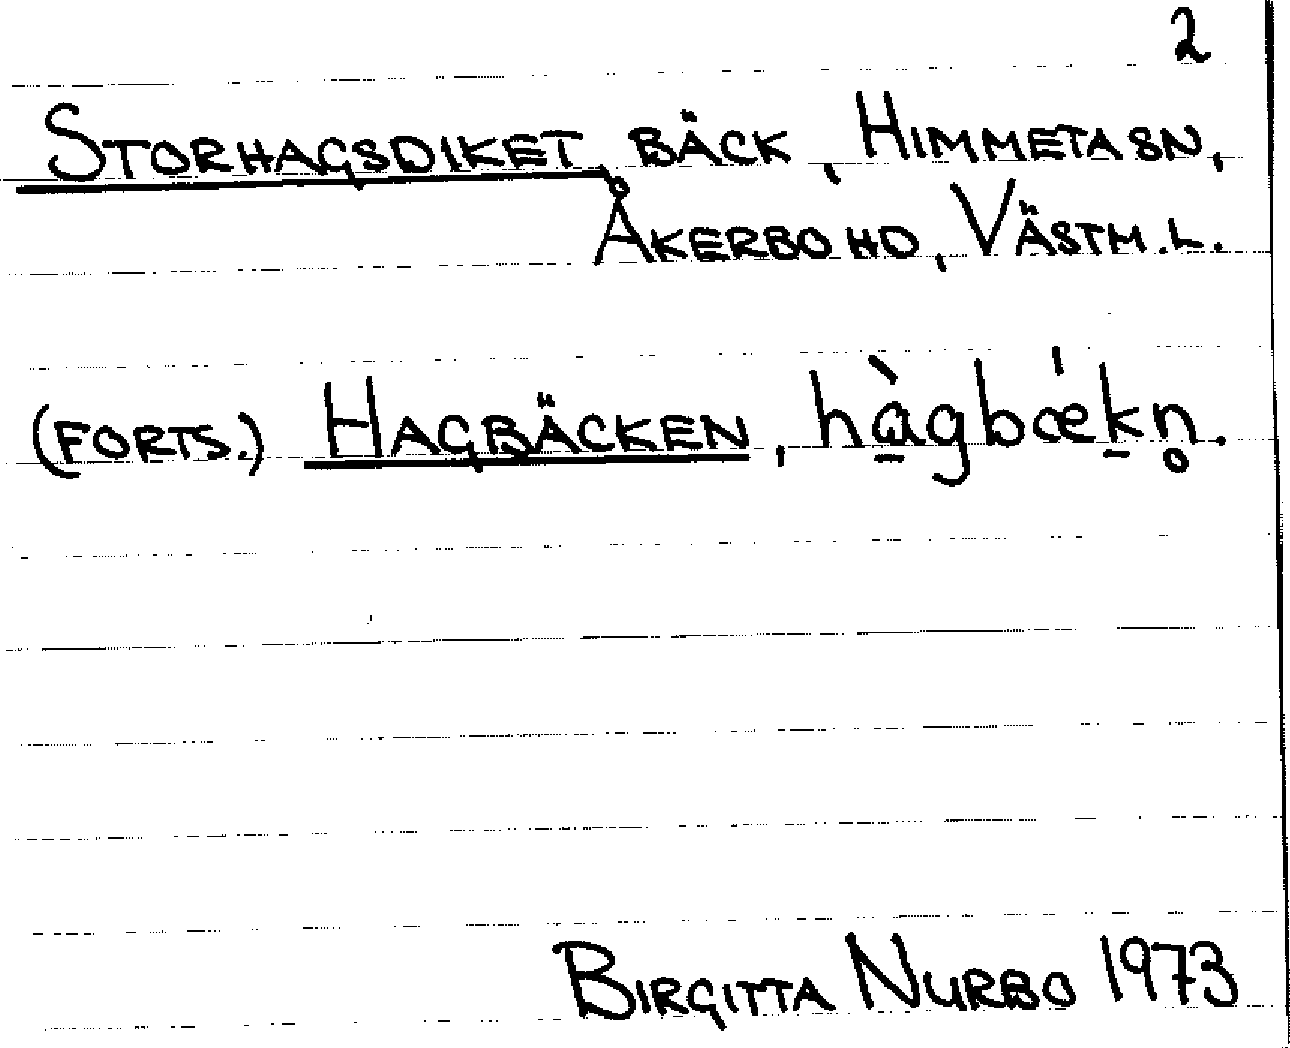 2
STORHAGSDIKET, BÄCK, HIMMETA SN,
ÅKERBO HD, VÄSTM. L.
(FORTS.) HAGBÄCKEN, hà̱gbæ̍ḵn̥.
BIRGITTA NURBO 1973